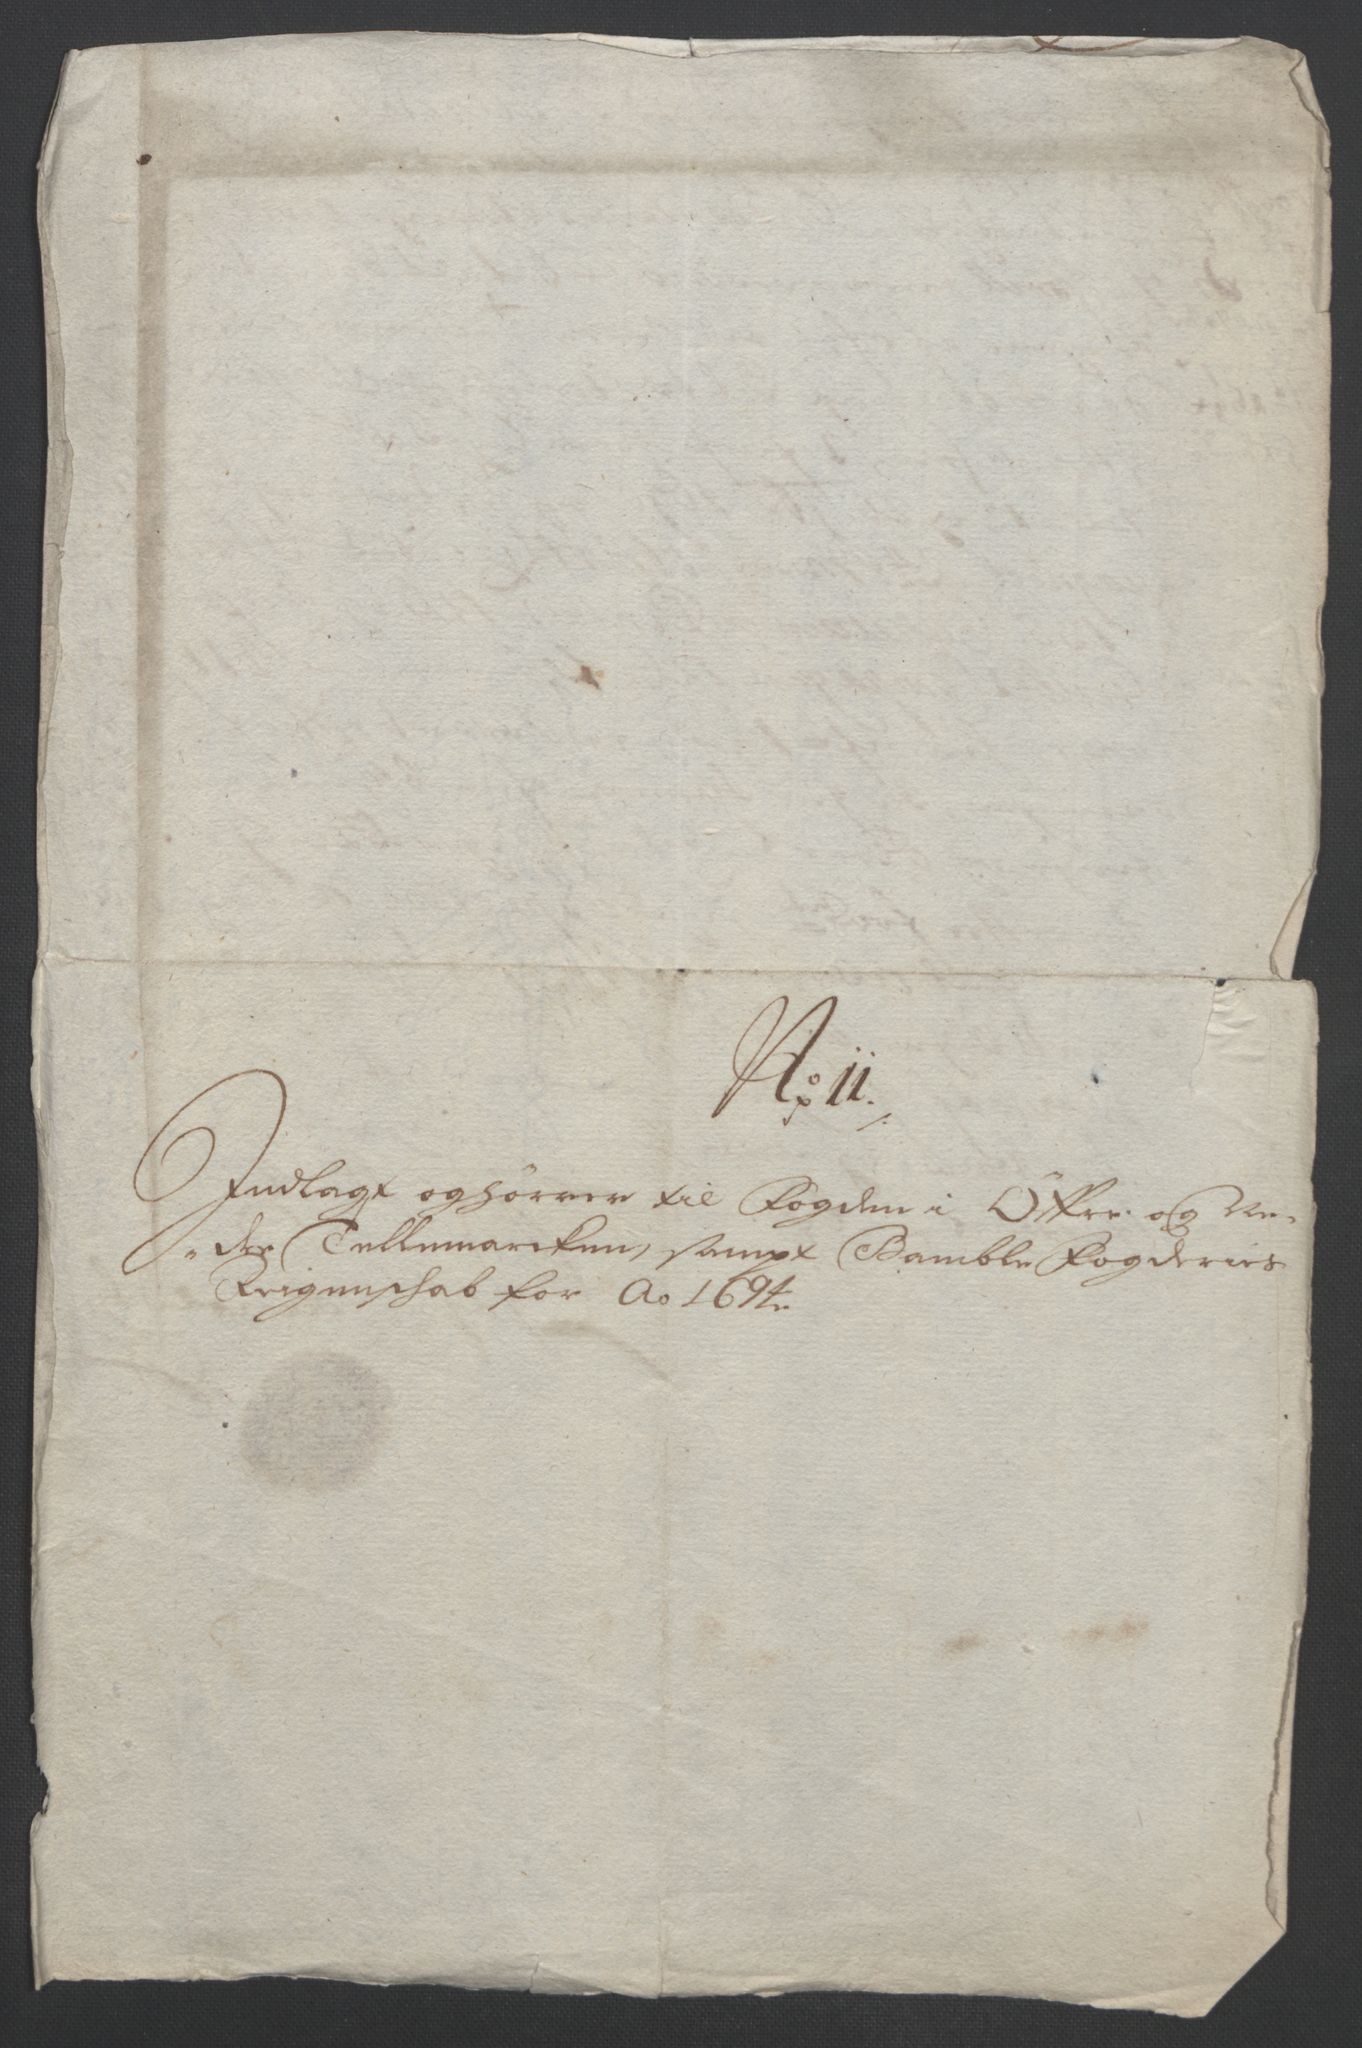 No. 11.
Indlagt og hörrer til Fogden i Öfre og Ne-
der Tellemarcken, sampt Bamble Fogderies
Reigenschab for Ao 1694